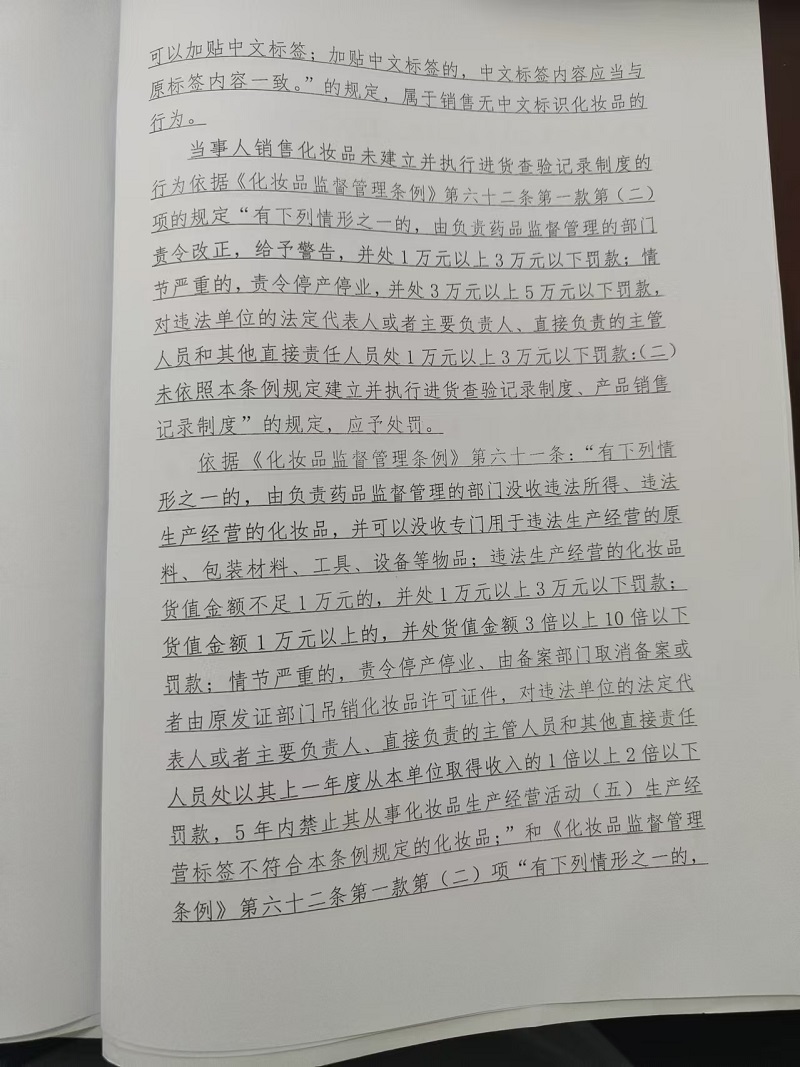 可以加贴中文标签；加贴中文标签的，中文标签内容应当与
原标签内容一致。”的规定，属于销售无中文标识化妆品的
行为。
当事人销售化妆品未建立并执行进货查验记录制度的
行为依据《化妆品监督管理条例》第六十二条第一款第（二）
项的规定“有下列情形之一的，由负责药品监督管理的部门
责令改正，给予警告，并处1万元以上3万元以下罚款；情
节严重的，责令停产停业，并处3万元以上5万元以下罚款，
对违法单位的法定代表人或者主要负责人、直接负责的主管
人员和其他直接责任人员处1万元以上3万元以下罚款：（二）
未依照本条例规定建立并执行进货查验记录制度、产品销售
记录制度”的规定，应予处罚。
依据《化妆品监督管理条例》第六十一条：“有下列情
形之一的，由负责药品监督管理的部门没收违法所得、违法
生产经营的化妆品，并可以没收专门用于违法生产经营的原
料、包装材料、工具、设备等物品；违法生产经营的化妆品
货值金额不足1万元的，并处1万元以上3万元以下罚款；
货值金额1万元以上的，并处货值金额3倍以上10倍以下
罚款；情节严重的，责令停产停业、由备案部门取消备案或
者由原发证部门吊销化妆品许可证件，对违法单位的法定代
表人或者主要负责人、直接负责的主管人员和其他直接责任
人员处以其上一年度从本单位取得收入的1倍以上2倍以下
罚款，5年内禁止其从事化妆品生产经营活动（五）生产经
营标签不符合本条例规定的化妆品；”和《化妆品监督管理
条例》第六十二条第一款第（二）项“有下列情形之一的，